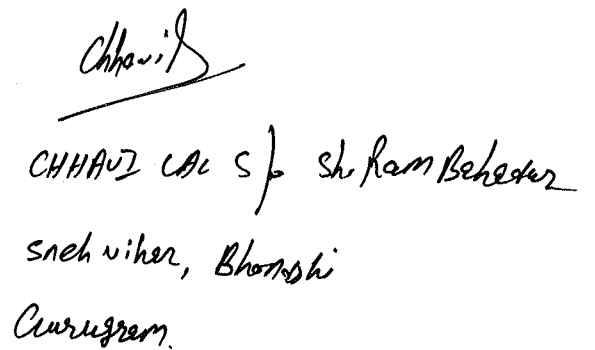 Chhavil
CHHAVI LAL S/o Sh. Ram Bahadur
Sneh vihar, Bhondshi
Gurugram.